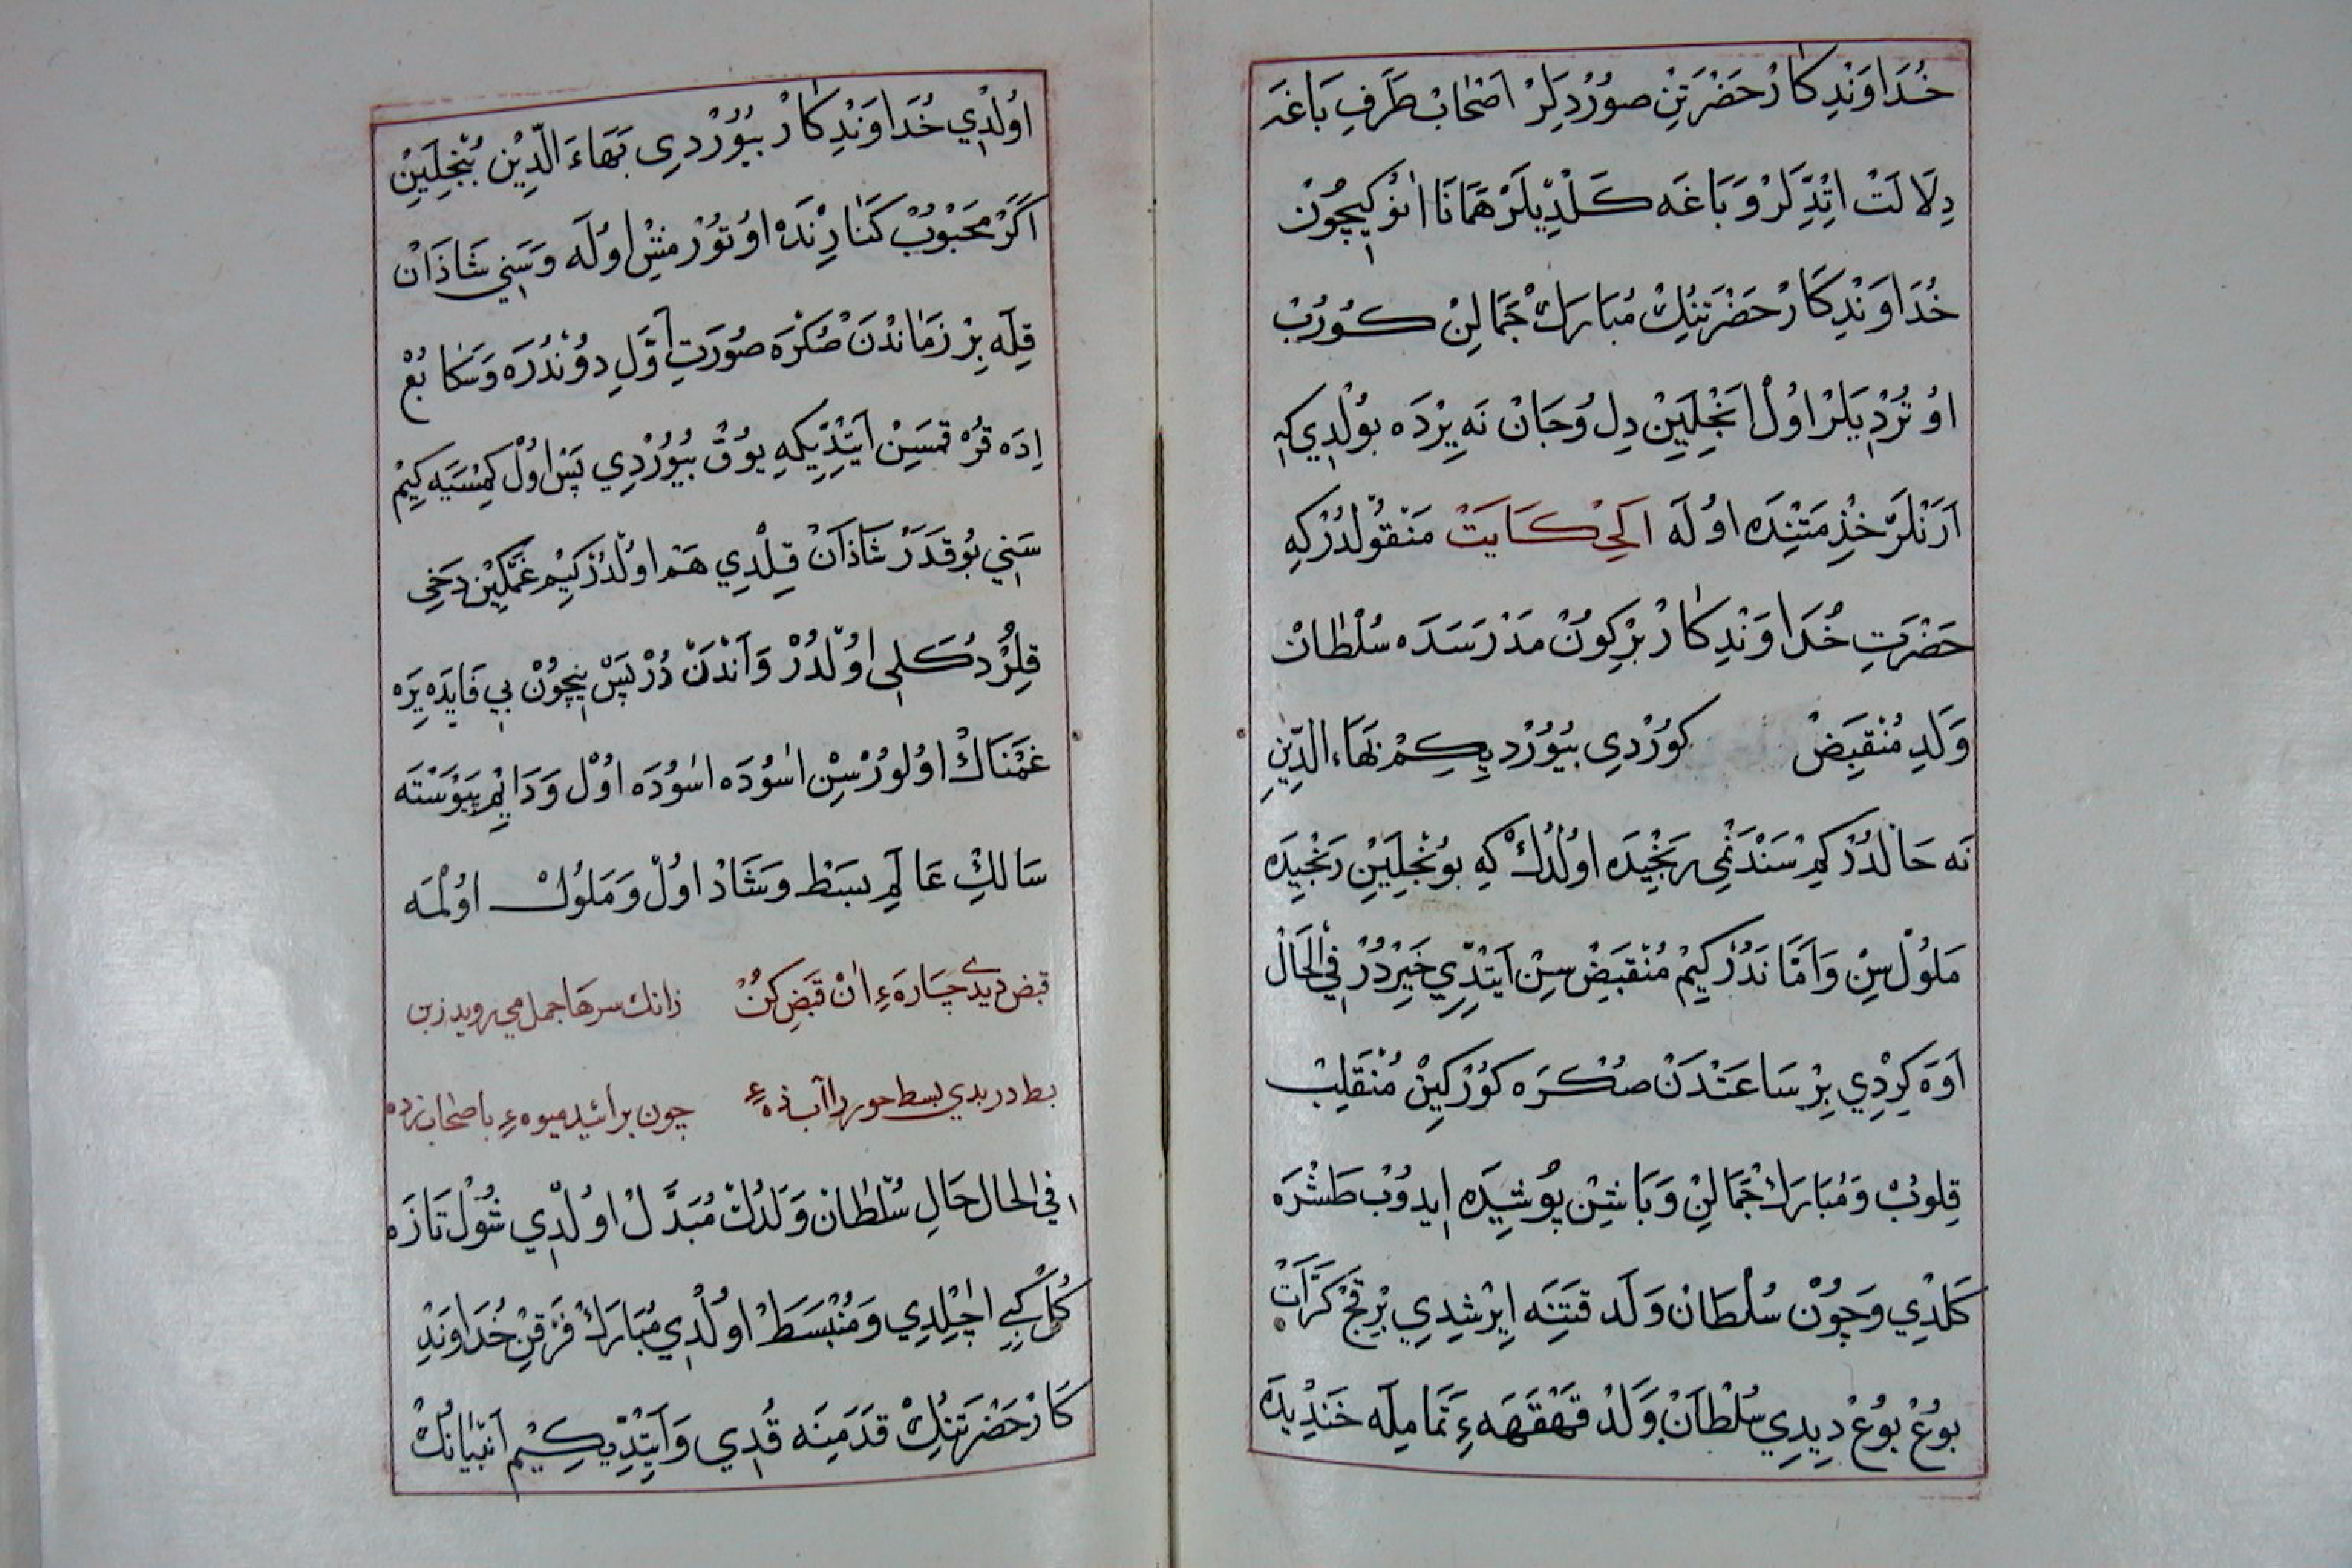 خُدَاوَنْدِكَارْ حَضْرَتِنْ صُورْدِلَرْ اَصْحَابْ طَرَفِ بَاغَه
دِلَالَتْ اِتْدِلَرْ وَبَاغَه كَلْدِيلَرْ هَمَانَا اَنُوكِيچُونْ
خُدَاوَنْدِكَارْ حَضْرَتِنُكْ مُبَارَكْ جَمَالِنْ كُورُبْ
اوُتُرْدِيلَرْ اوُلْ اَنْجِلَيِنْ دِلُ وجَانْ نَه يِرْدَه بُولْدِي كِه
اَرَنْلَرْ خِذْمَتِنْدَه اوُلَه اَلْحِكَايَتْ مَنْقُولْدُرْكِه
حَضْرَتِ خُدَاوَنْدِكَارْ بِرْكُونْ مَدْرَسَدَه سُلْطَانْ
وَلَدِ مُنْقَبِضْ كُورْدِي بُيُورْدِيكِمْ بَهَاءَ الدِّينِ
نَه حَالْدُرْكِمْ سَنْدَنْمِي رَنْجِيدَه اوُلْدُكْ كِه بُونْجِلَيِنْ رَنْجِيدَه
مَلُولْ سِنْ وَاَمَّا نَدُرْ كِيمْ مُنْقَبِضْ سِنْ اَيْتْدِي خَيِرْدُرْ فِي الْحَالْ
اَوَه كِرْدِي بِرْ سَاعَتْدَنْ صُكْرَه كُورْكِينْ مُنْقَلِبْ
قِلُوبْ وَمُبَارَكْ جَمَالِنْ وَبَاشِنْ پُوشِيدَه اِيدُوبْ طَشْرَه
كَلْدِي وَچُونْ سُلْطَانْ وَلَد قَتِنَه اِيرْشِدِي بِرْقَچْ كَرَّاتْ
بُوغْ بُوغْ دِيدِي سُلْطَانْ وَلَدْ قَهْقَهَهءِ تَمَامِيلَه خَنْدِيدَه
اوُلْدِي خُدَاوَنْدِكَارْ بُيُورْدِي بَهَاءَ الدِّينْ بُنْجِلَيِنْ
اَكَرْ مَحْبُوبْ كَنَارِنْدَه اوُتُورْمِشْ اوُلَه وَسَنِي شَاذَانْ
قِلَه بِرْ زَمَانْدَنْ صُكْرَه صُورَتِ اَوَّلِ دوُنْدُرَه وَسَكَا بُغْ
اِدَه قُرْقَمِسَيِنْ اَيْتْدِيكِه يُوقْ بُيُورْدِي پَسْ اوُلْ كِمْسَيَه كِيمْ
سَنِي بُو قَدَرْ شَاذَانْ قِلْدِي هَمْ اوُلْدُرْ كِيمْ غَمْكِينْ دَخِي
قِلُرْ دُكَلِي اوُلْدُرْ وَاَنْدَنْ دُرْ پَسْ نِيچُونْ بِي فَايِدَه يَرَه
غَمْنَاكْ اوُلُورْسِنْ اسُودَه اسُودَه اوُلْ وَدَايِمْ پَيْوَسْتَه
سَالِكِ عَالَمِ بَسَطْ وَشَادْ اوُلْ وَمَلُولْ اوُلْمَه
قبض ديدى چَارَهءِ اَنْ قَبَضِ كُنْ زانك سرها جمل مي رويد زبن
بسط ديدي بسط خود را آب ده چون برآئيد ميوهءِ با اصحاب ده
فِي الحال حَالِ سُلْطَانْ وَلَدُكْ مُبَدَّلْ اوُلْدِي شُولْ تَازَه
كُلْ كِبِي اَچِلْدِي وَمُنْبَسَطْ اوُلْدِي مُبَارَكْ فَرْقِنْ خُدَاوَنْدِ
كَارْ حَضْرَتِنُكْ قَدَمِنَه قُدِي وَاَيْتْدِيكِيمْ اَنْبِيَانُكْ